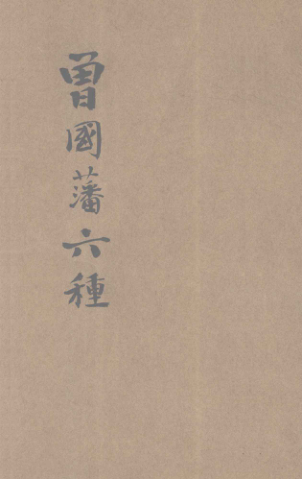 曾國藩六種